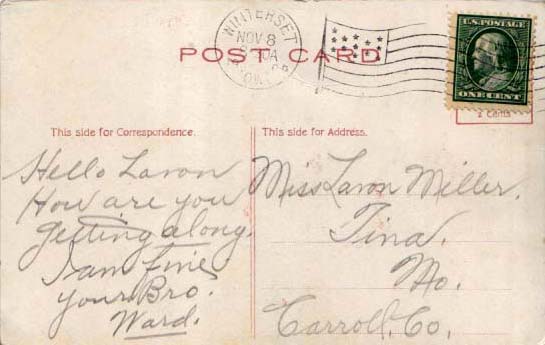 WINTERSET
NOV 8
IOWA
POST CARD
U.S. POSTAGE
ONE CENT
2 Cents
This side for Correspondence.
This side for Address.
Hello Lavon
How are you
getting along.
I am fine
your Bro.
Ward.
Miss Lavon Miller.
Tina.
Mo.
Carroll, Co.